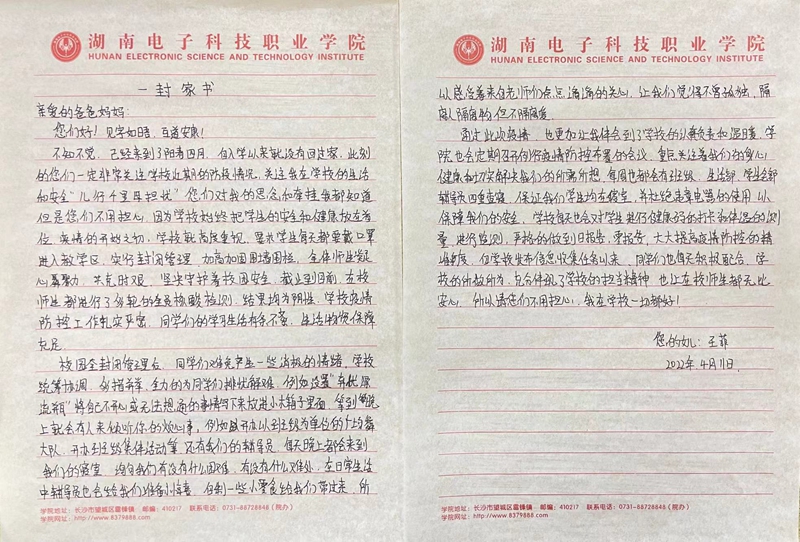 湖南电子科技职业学院
HUNAN ELECTRONIC SCIENCE AND TECHNOLOGY INSTITUTE
一封家书
亲爱的爸爸妈妈:
您们好!见字如晤,百道安康!
不知不觉,已经来到了阳春四月,自入学以来就没有回过家,此刻
的您们一定非常关注学校近期的防疫情况,关注我在学校的生活
和安全"儿行千里母担忧"您们对我的思念和牵挂我都知道
但是您们不用担心,因为学校始终把学生的安全和健康放在首
位,疫情的开始之初,学校就高度重视,要求学生每天都要戴口罩
进入教学区,实行封闭管理,加高加固围墙围栏,全体师生凝
心聚力、共克时艰,坚决守护着校园安全,截止到目前,在校
师生都进行了多轮的全员核酸检测,结果均为阴性,学校疫情
防控工作扎实严密,同学们的学习生活有条不紊,生活物资保障
充足。
校园全封闭管理后,同学们难免产生一些消极的情绪,学校
统筹协调,多措并举,全力的为同学们排忧解难,例如设置"解忧
"将自己不开心或无法想通的事情写下来放进小箱子里面,等到晚
上就会有人来倾听你的烦心事,例如开办以班级为单位的广场舞
大队,开办班级集体活动等,还有我们的辅导员,每天晚上都会来到
我们的寝室,询问我们有没有什么困难,有没有什么难处,在日常生活
中辅导员也会给我们准备小惊喜,自制一些小零食给我们带过来,所
学院地址:长沙市望城区雷锋镇 邮编:410217 联系电话:0731-88728848(院办)
学院网址:http://www.8379888.com
湖南电子科技职业学院
HUNAN ELECTRONIC SCIENCE AND TECHNOLOGY INSTITUTE
以感受着来自老师们点点滴滴的关心,让我们觉得不曾孤独,隔
离人隔离物但不隔离爱。
通过此次疫情,也更加让我体会到了学校的认真负责和温暖,学
院也会定期召开例行疫情防控布署的会议,重点关注着我们的身心
健康和切实解决我们的所需所想,每周也都会有班级、生活部、学生会部
辅导员四重查寝,保证我们学生均在寝室,并杜绝违章电器的使用,以
保障我们的安全,学校每天也会对学生进行健康码的打卡和体温的测
量,进行监测,严格的做到日报告、零报告,大大提高疫情防控的精
准制度,但学校发布信息收集任务以来,同学们也每天积极配合,学
校的所做所为,充分体现了学校的担当精神,也让在校师生都无比
安心,所以请您们不用担心,我在学校一切都好!
您的女儿:王菲
2022年4月11日
学院地址:长沙市望城区雷锋镇 邮编:410217 联系电话:0731-88728848(院办)
学院网址:http://www.8379888.com